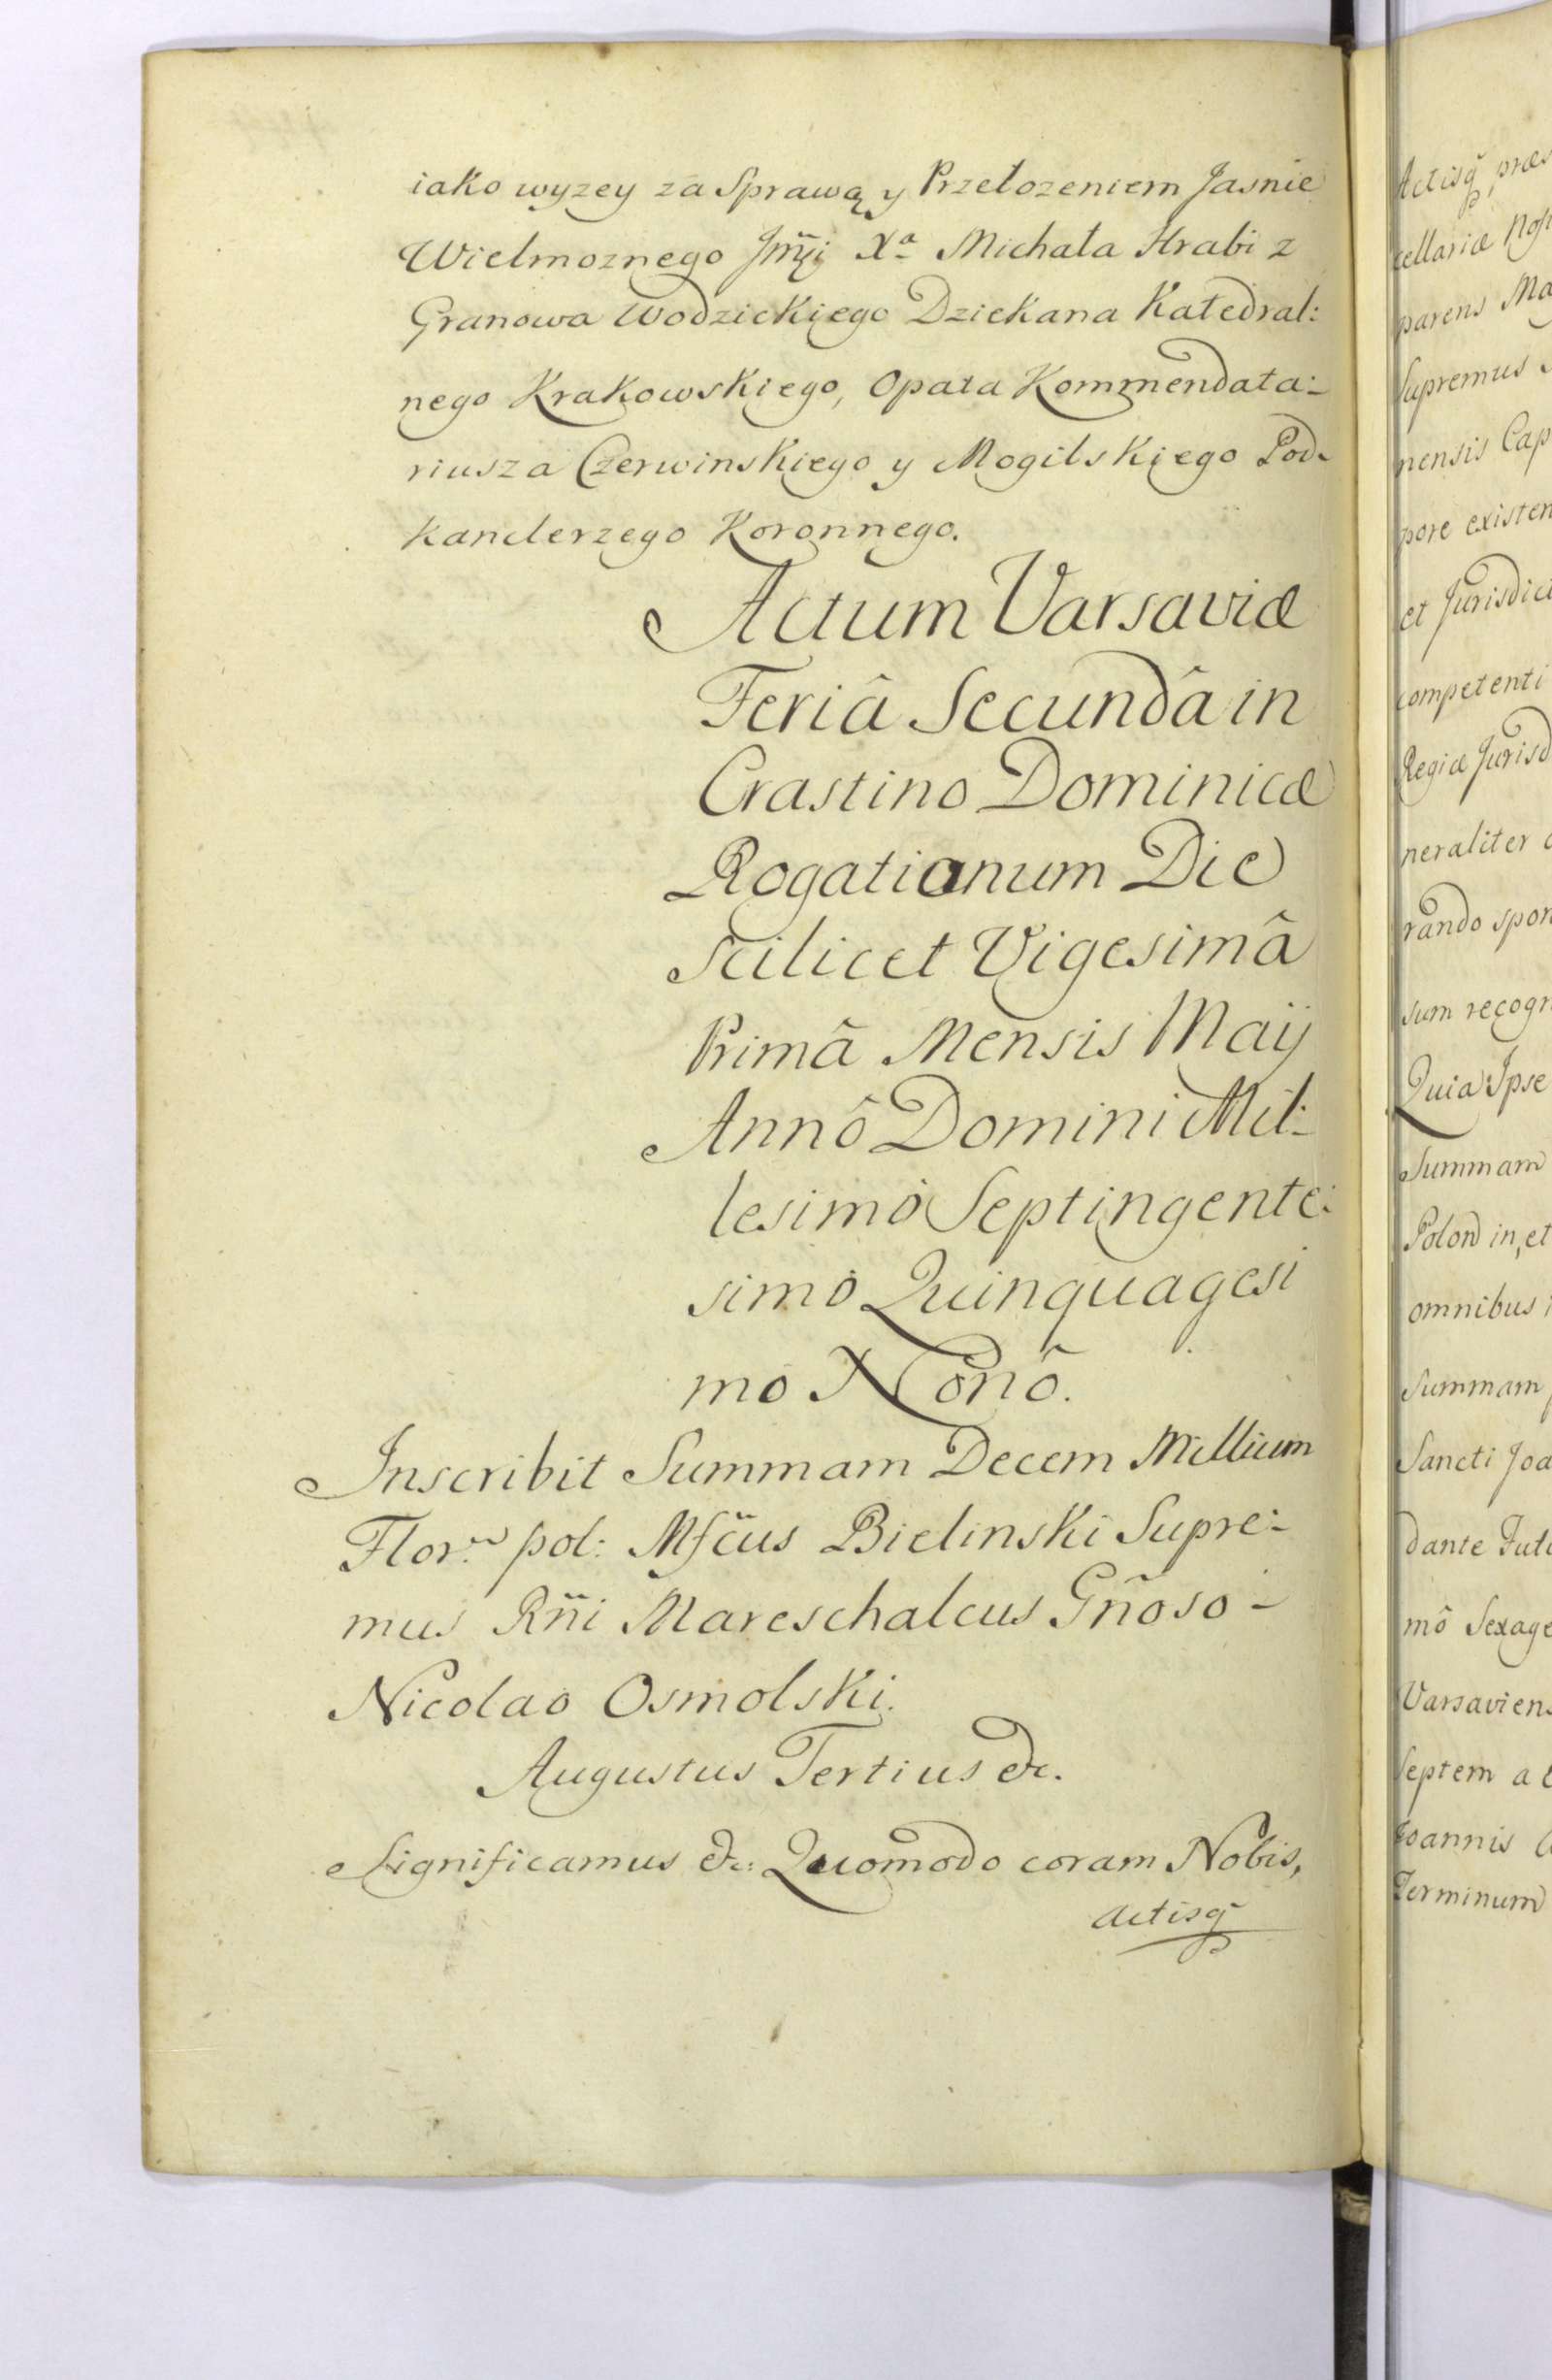 iako wyzey za Sprawą y Przełozeniem Jasnie
Wielmoznego Jm̃ci Xa Michała Hrabi z
Granowa Wodzickiego Dziekana Katedral:
nego Krakowskiego, Opata Kommendata:
riusza Czerwinskiego y Mogilskiego Pod-
kanclerzego Koronnego.
Actum Varsaviæ
Feriâ Secundâ in
Crastino Dominicæ
Rogationum Die
scilicet Vigesimâ
Primâ Mensis Maij
Annô Domini Mil:
lesimo Septingente:
simo Quinquagesi
mo Nonô.
Inscribit Summam Decem Millium
Flor: pol: Mfc̃us Bielinski Supre:
mus Rñi Mareschalcus Gñoso
Nicolao Osmolski.
Augustus Tertius &c.
Significamus &c: Quomodo coram Nobis,
Actisq̃
Actisq̃, præs
cellariæ Nos
parens Ma
Supremus
nensis Cap
pore existen
et Jurisdic
competenti
Regiæ Jurisd
neraliter
rando spon
sum recogn
Quia Ipse
Summam
Polon in, et
omnibus
Summam
Sancti Joa
dante Futu
mô Sexage
Varsaviens
Septem a
Joannis
Terminum